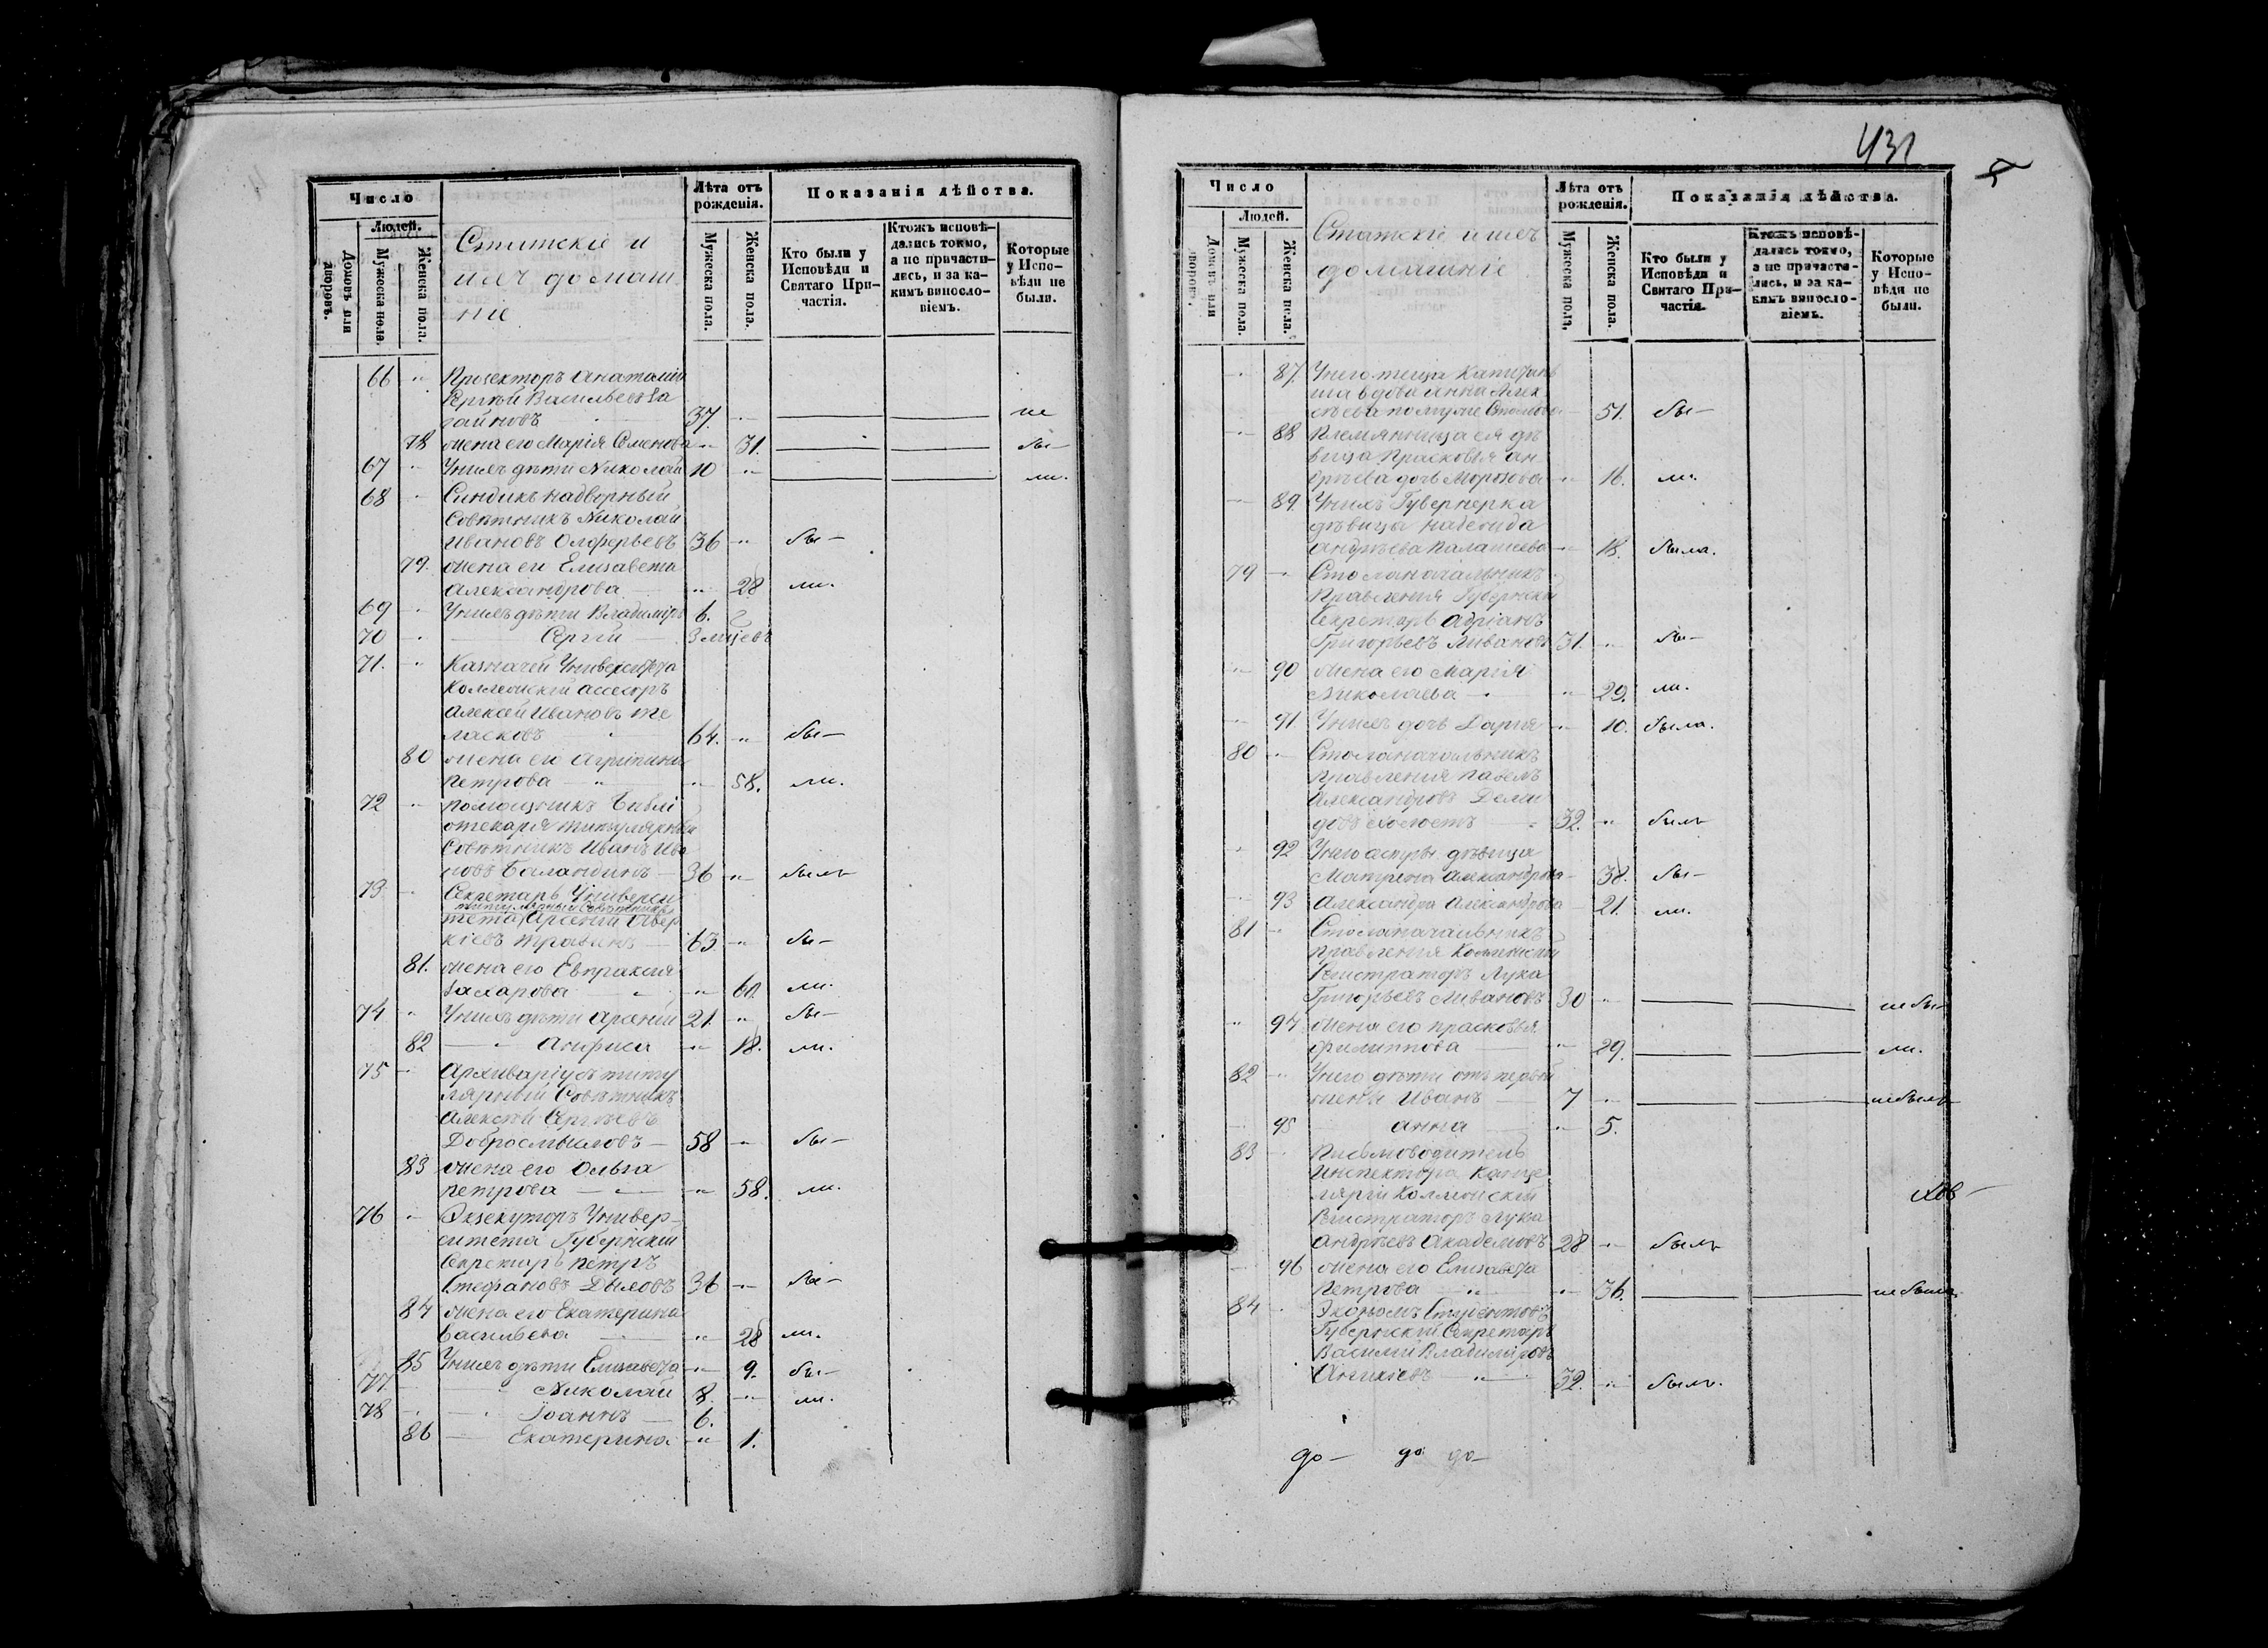 431
Число
Людей.
Домовъ или дворовъ.
Мужеска пола.
Женска пола.
Статскіе и
ихъ домаш
ніе
Лѣта отъ рожденія.
Мужеска пола.
Женска пола.
Показанія дѣйства.
Кто были у Исповѣди и Святаго Причастія.
Ктожъ исповѣдались токмо, а не причастились, и за какимъ винословіемъ.
Которые у Исповѣди не были.
66 Прозекторъ Анатоміи
Сергѣй Васильевъ
37. не
78 Жена его Марія Семенова 31. бы-
67 У нихъ дѣти Николай 10 ли.
68 Синдикъ надворный
Совѣтникъ Николай
Ивановъ Олферьевъ 36 бы-
79. Жена его Елисавета
Александрова 28 ли.
69 У нихъ дѣти Владиміръ 6.
70 Сергій 3 мѣсецъ
71. Казначей Университета
Коллежскій ассесоръ
Алексѣй Ивановъ
64. бы-
80 Жена его Агрипина
Петрова 58. ли.
72 помощникъ Библі
отекаря титулярный
Совѣтникъ Иванъ Ива
новъ Баландинъ 36 былъ
73 Секретарь Универси
титулярный совѣтникъ
тета Арсеній Авер
кіевъ 63. бы-
81. Жена его Евпраксія
Захарова 60. ли.
74 У нихъ дѣти Арсеній 21. бы-
82 Анфиса 18. ли.
75 Архиваріусъ титу
лярный Совѣтникъ
Алексѣй Сергѣевъ
Добросмысловъ 58 бы-
83 Жена его Ольга
Петрова 58. ли.
76 Экзекуторъ Универ-
ситета Губернскій
Секретарь Петръ
Стефановъ 36 бы-
84 Жена его Екатерина
Васильева 28 ли.
85 У нихъ дѣти Елисавета 9. бы-
77 Николай 8. ли.
78 Іоаннъ 6.
86 Екатерина 1.
Число
Людей.
Домовъ или дворовъ.
Мужеска пола.
Женска пола.
Статскіе и ихъ
домашніе
Лѣта отъ рожденія.
Мужеска пола.
Женска пола.
Показанія дѣйства.
Кто были у Исповѣди и Святаго Причастія.
Ктожъ исповѣдались токмо, а не причастились, и за какимъ винословіемъ.
Которые у Исповѣди не были.
87. У него теща Капитан
ша вдова Анна Алек
сѣева по мужѣ 51. бы-
88 Племянница ея дѣ
вица Прасковья Ан
дреева дочь Морозова 16. ли.
89. У нихъ Гувернерка
дѣвица Надежда
Андрѣева 18. была.
79 Столоначальникъ
Правленія Губернскій
Секретарь Адріанъ
Григорьевъ Ливановъ 31. бы-
90 Жена его Марія
Николаева 29. ли.
91 У нихъ дочь Дарія 10. была.
80 Столоначальникъ
Правленія Павелъ
Александровъ Деми
довъ холостъ 32. былъ
92 У него сестры дѣвица
Матрена Александрова 38. бы-
93 Александра Александрова 21. ли.
81 Столоначальникъ
Правленія Коллежскій
Регистраторъ Лука
Григорьевъ Ливановъ 30 не бы-
94 Жена его Прасковья
Филиппова 29. ли.
82 У него дѣти отъ первой
жены Иванъ 7 не былъ
95 Анна 5.
83 Письмоводитель
Инспектора Канце
ляріи Коллежскій
Регистраторъ Лука
Андрѣевъ Академовъ 28 былъ
96 Жена его Елисавета
Петрова 36. не была.
84 Экономъ Студентовъ
Губернскій Секретарь
Василій Владиміровъ
Аникіевъ 32. былъ.
до- до до-